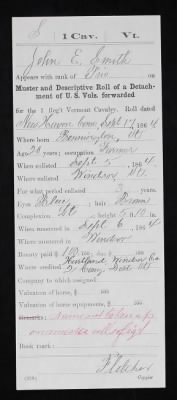 S
1 Cav. Vt.
John E. Smith
Appears with rank of Priv. on
Muster and Descriptive Roll of a Detach-
ment of U. S. Vols. forwarded
for the 1 Reg't Vermont Cavalry. Roll dated
New Haven Conn. Sept 17, 1864
Where born Bennington, Vt.
Age 26 years; occupation Farmer
When enlisted Sept 5, 1864
Where enlisted Windsor Vt.
For what period enlisted years.
Eyes Blue; hair Brown
Complexion Lt; height 5 ft. 10 in.
When mustered in Sept 6, 1864
Where mustered in Windsor
Bounty paid $ 100; due $ 100
Where credited Hartland Windsor Co
2 Cong. Dist Vt.
Company to which assigned
Valuation of horse, $ 100
Valuation of horse equipments, $ 100
Remarks: Name not borne
on muster roll of
Book mark:
Fletcher
(339) Copyist